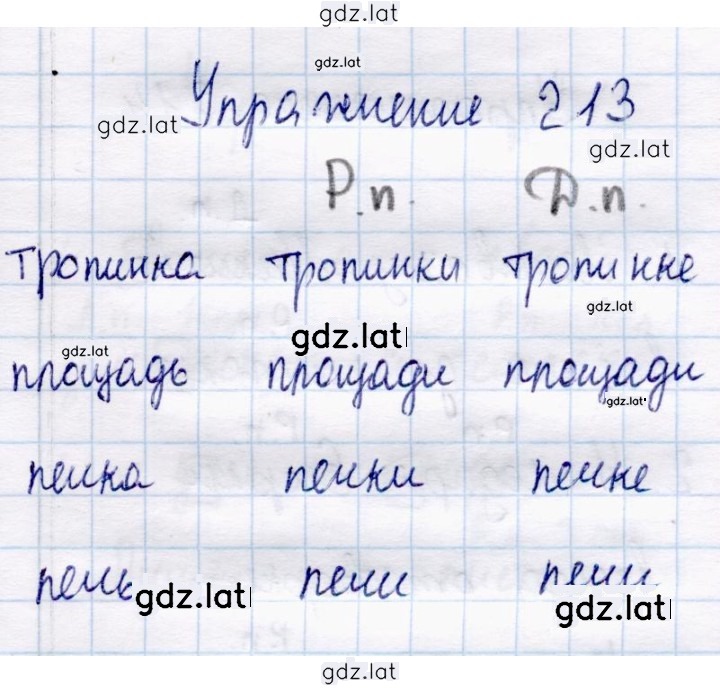 gdz.lat
gdz.lat
Упражнение 213
gdz.lat
gdz.lat
Р.п. Д.п.
тропинка тропинки тропинке
gdz.lat
gdz.lat
gdz.lat
площадь площади площади
gdz.lat
печка печки печке
печь печи печи
gdz.lat
gdz.lat
gdz.lat